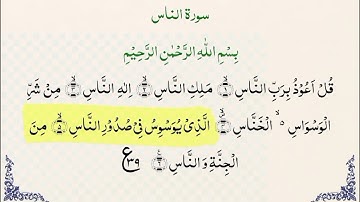 سورة الناس
بِسْمِ اللهِ الرَّحْمٰنِ الرَّحِيْمِ
قُلْ اَعُوْذُ بِرَبِّ النَّاسِ ۝١ مَلِكِ النَّاسِ ۝٢ اِلٰهِ النَّاسِ ۝٣ مِنْ شَرِّ
الْوَسْوَاسِ ۵ۙ الْخَنَّاسِ ۝٤ الَّذِيْ يُوَسْوِسُ فِيْ صُدُوْرِ النَّاسِ ۝٥ مِنَ
الْجِنَّةِ وَالنَّاسِ ۝٦ ع ٣٩